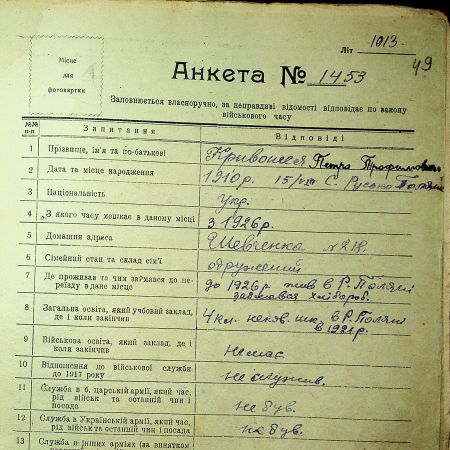 Літ 1013
49
Місце
для
фотокартки
Анкета № 1453
Заповнюється власноручно, за неправдиві відомості відповідає по закону
військового часу
№№ п-п Запитання Відповіді
1 Прізвище, ім'я та по-батькові Кривошея Петро Трофимович
2 Дата та місце народження 1910 р. 15/VIII С. Русько Поляна
3 Національність Укр.
4 З якого часу мешкає в даному місці з 1926 р.
5 Домашня адреса Шевченка № 218.
6 Сімейний стан та склад сім'ї одружений
7 Де проживав та чим займався до переїзду в дане місце до 1926 р жив в Р. Поляні
займався хлібороб.
8 Загальна освіта, який учбовий заклад,
де і коли закінчив 4 кл. в Р. Поляні
в 1921 р.
9 Військова освіта, який заклад, де і
коли закінчив Немає
10 Відношення до військової служби
до 1917 року не служив.
11 Служба в б. царській армії, який час,
рід військ та останній чин і
посада не був.
12 Служба в Українській армії, який час,
рід військ та останній чин і посада не був.
13 Служба в інших арміях (за винятком